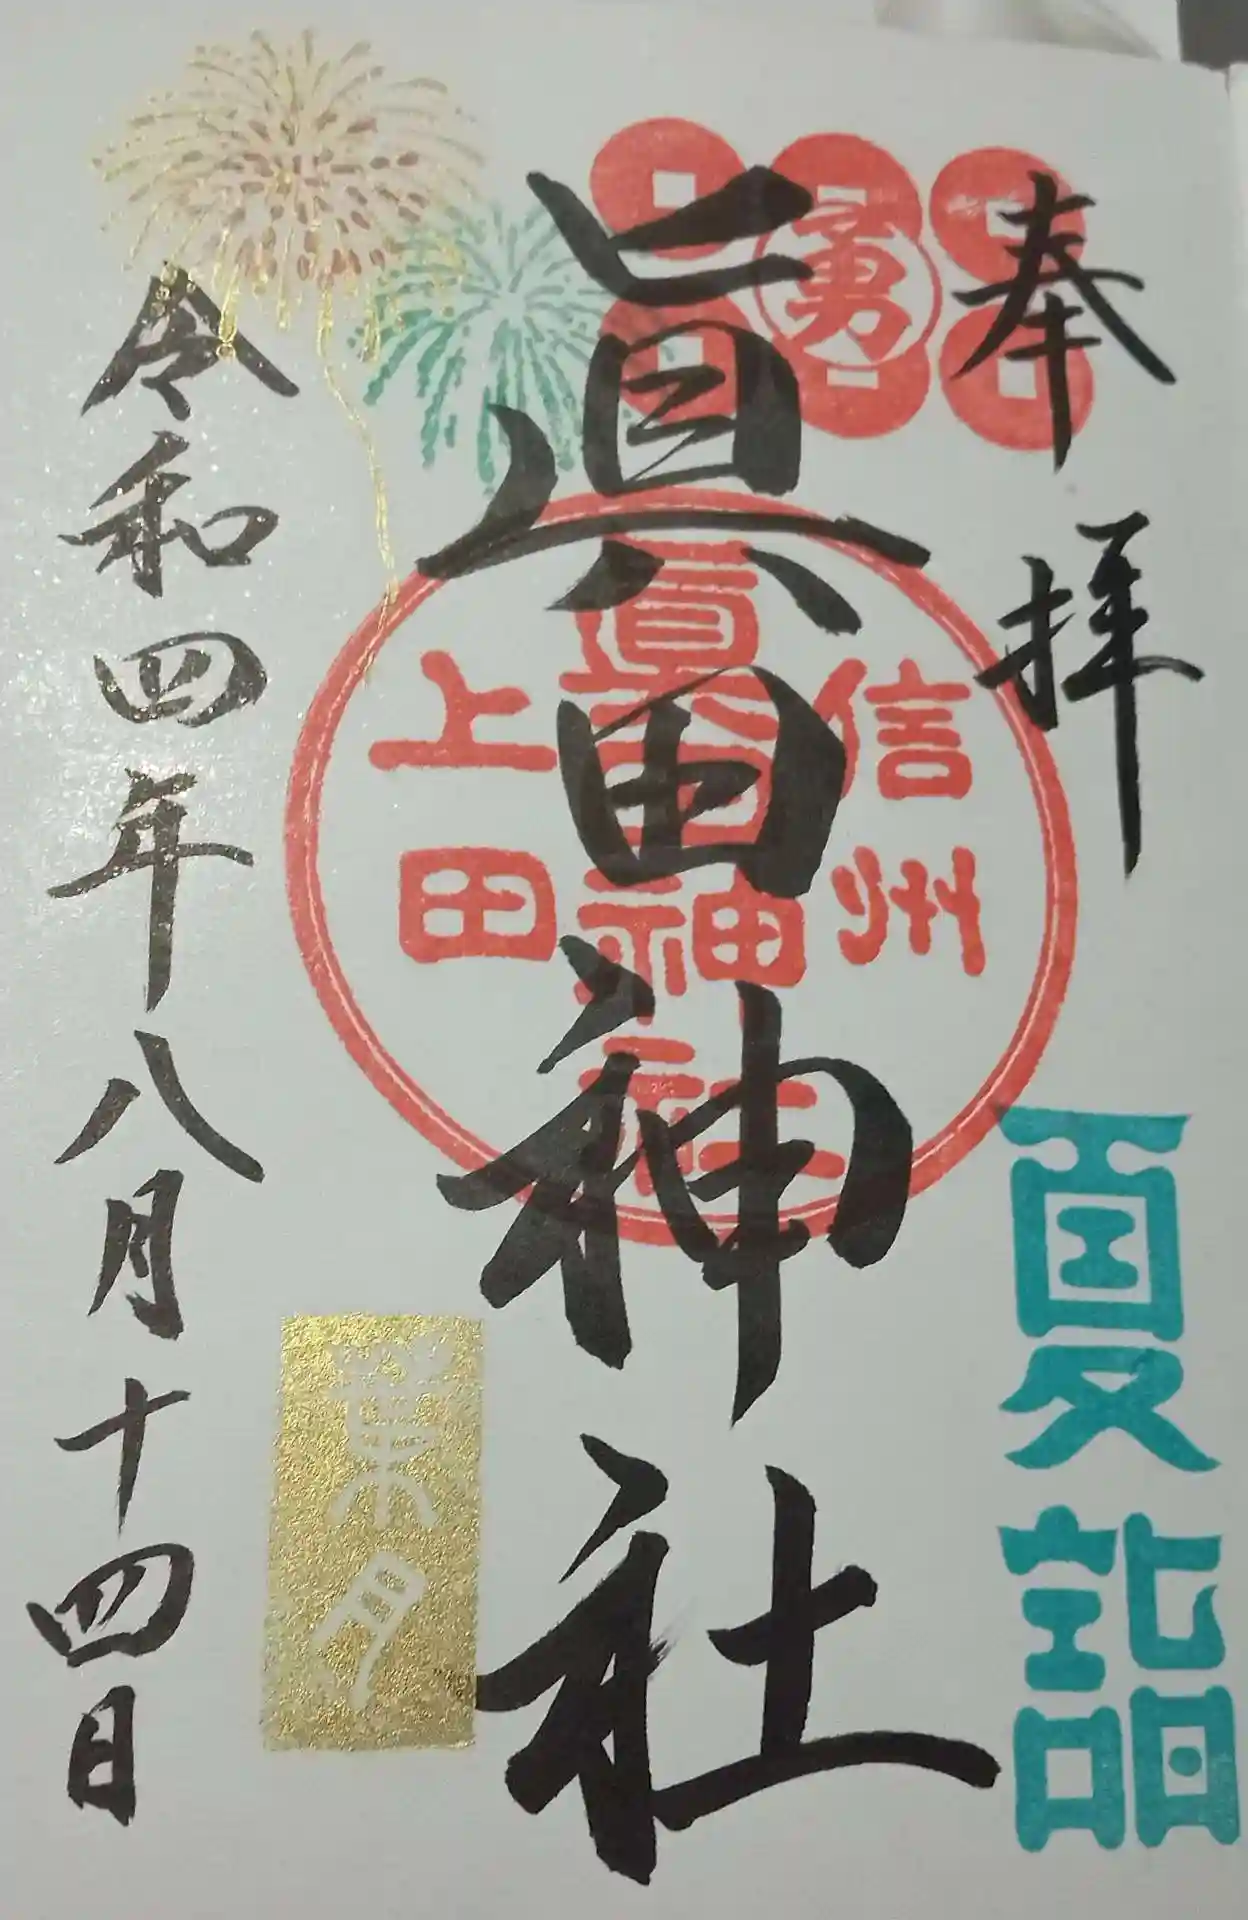 奉拝
夏詣
勇
眞田神社
信州
眞田神社
上田
葉月
令和四年八月十四日